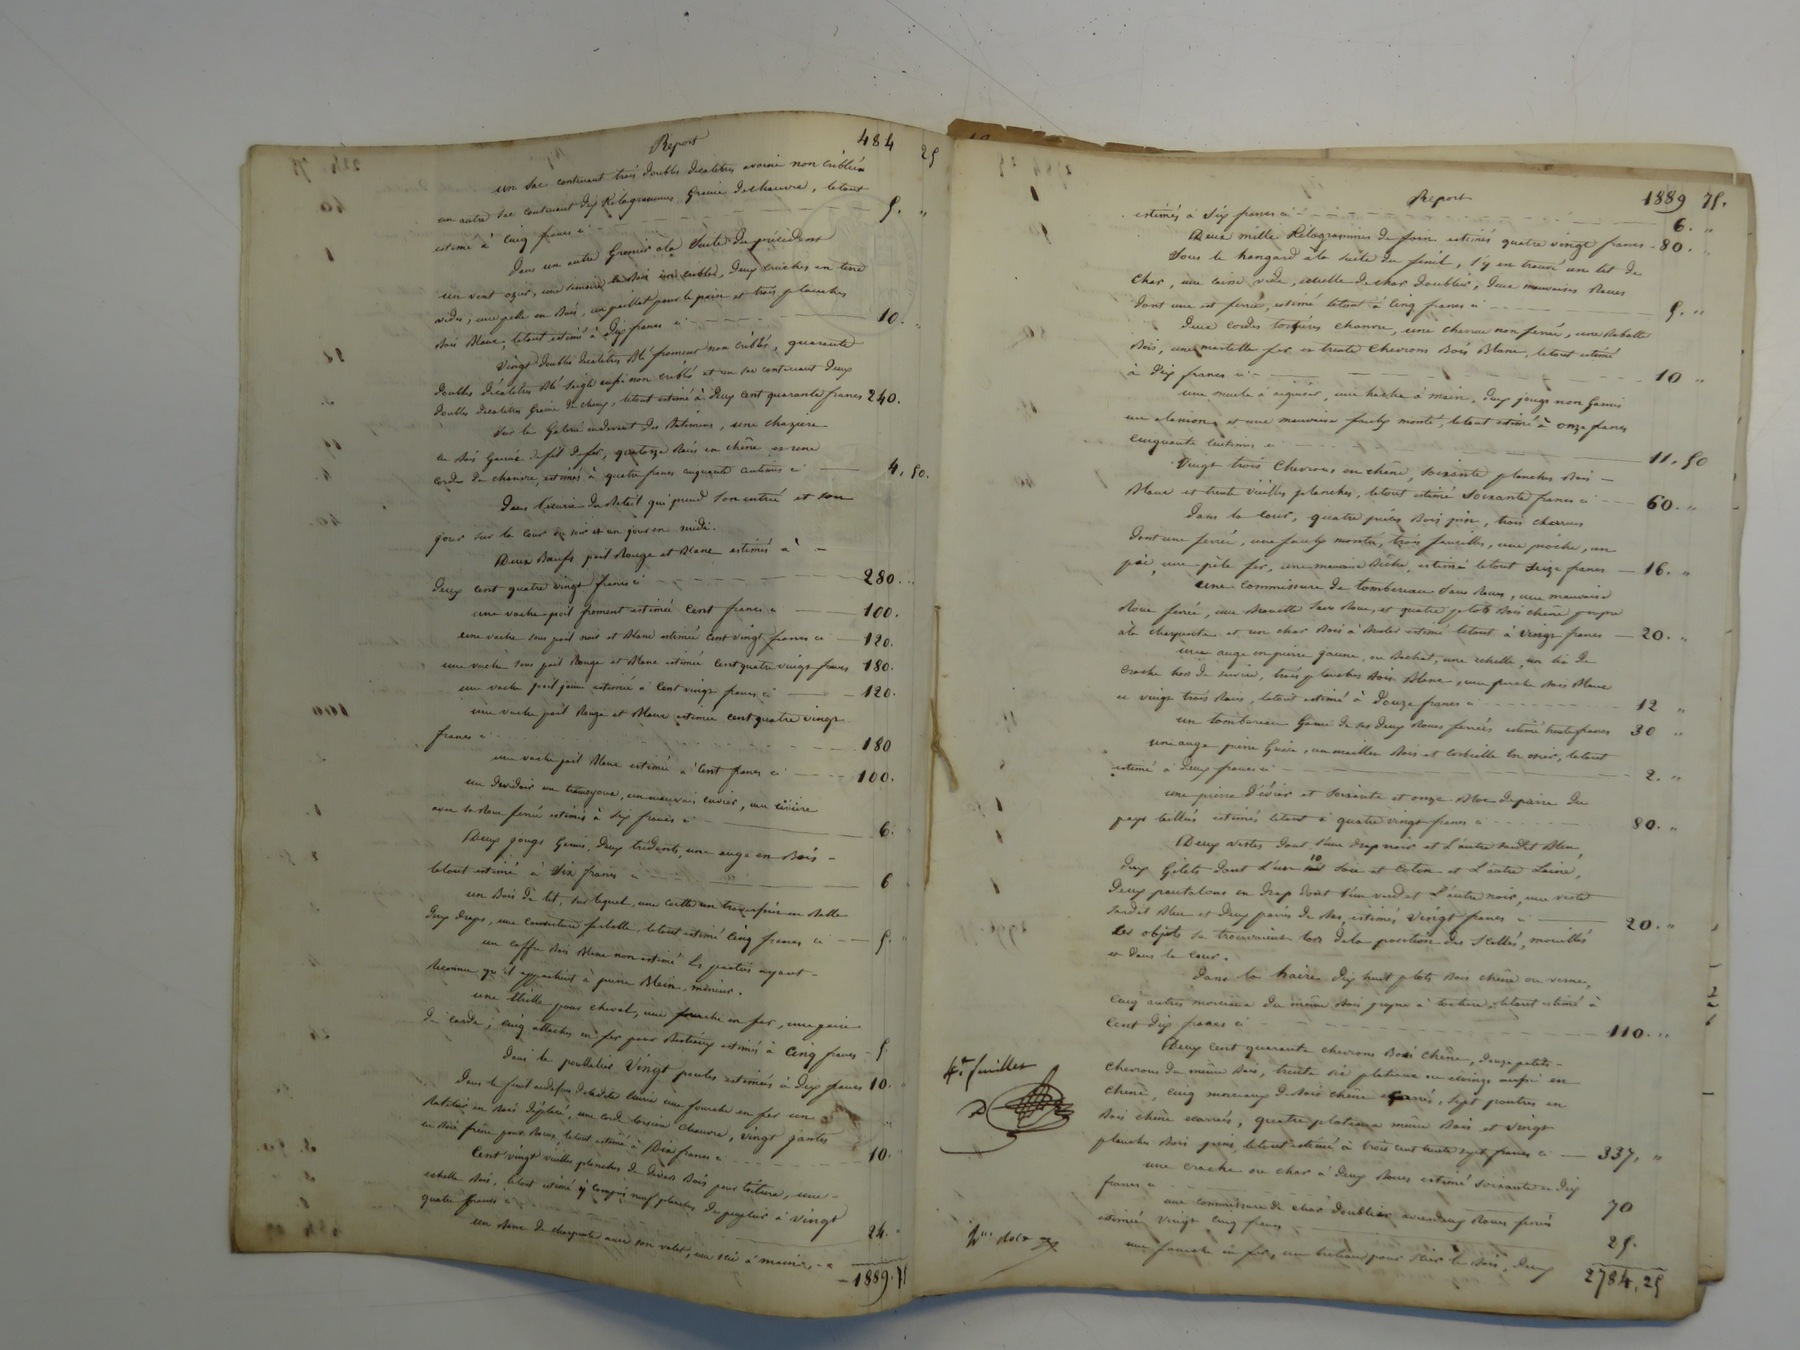 Report 484 25
un sac contenant trois doubles décalitres avoine non criblée
un autre sac contenant dix Kilogrammes Graine de chanvre, letout
estimé à Cinq francs ci 5. "
Dans un autre Grenier à la suite du précédent
un vent osier, une bois deux cruches en terre
vides, une pelle en bois, un paillat pour le pain et trois planches
Bois Blanc, letout estimé à Dix francs ci 10. "
Vingt doubles décalitres Blé froment non criblés, quarante
doubles décalitres Blé seigle aussi non criblé et un sac contenant deux
doubles décalitres Graine de letout estimé à deux cent quarante francs 240.
Sur la Galerie audevant des Batimens, une
en bois Garnie de fil de fer, quatorze en chêne et une
corde de chanvre, estimés à quatre francs cinquante centimes ci 4. 50.
Dans l'écurie du Bétail qui prend son entrée et son
jour sur la cour de soir et un jour en midi.
Deux Bœufs poil Rouge et Blanc estimés à
deux cent quatre vingt francs ci 280.
une vache poil froment estimée Cent francs ci 100.
une vache sous poil noir et Blanc estimée Cent vingt francs ci 120.
une vache sous poil Rouge et Blanc estimée Cent quatre vingt francs 180.
une vache poil jaune estimée à Cent vingt francs ci 120.
une vache poil Rouge et Blanc estimée Cent quatre vingt
francs ci 180
une vache poil Blanc estimée à Cent francs ci 100.
un devidoir un un mauvais cuvier, une civière
avec sa Roue ferrée estimés à six francs ci 6.
Deux jougs Garnis, deux tridents, une auge en Bois
letout estimé à Six francs ci 6
un Bois de lit, sur lequel, une un traversin en Balle
deux draps, une couverture letout estimé Cinq francs ci 5.
un coffre Bois Blanc non estimé les parties ayant
Reconnu qu'il appartient à pierre Blain, mineur.
une étrille pour cheval, une fourche en fer, une paire
de carde, cinq attaches en fer pour Bestiaux estimés à Cinq francs 5
Dans le poullalier Vingt poules estimées à Dix francs 10.
Dans le fenil audessus de ladite écurie une fourche en fer un
Ratelier en Bois déplacé, une corde chanvre, vingt jantes
en Bois frêne pour Roues, letout estimé à Dix francs ci 10.
Cent vingt vieilles planches de divers Bois pour toiture, une
échelle Bois, letout estimé y compris neuf planches de peuplier à Vingt
quatre francs ci 24.
un Banc de charpente avec son valet, une scie à main,
1889. 75
Report 1889 75.
estimés à Six francs ci 6. "
Deux mille Kilogrammes de foin estimés quatre vingt francs 80. "
Sous le hangard à la suite du fenil, s'y en trouvé un lit de
char, une caisse vide, échelle de char doublier, deux mauvaises Roues
dont une est ferrée, estimé letout à Cinq francs ci 5. "
Deux cordes chanvre, une charrue non ferrée, une
Bois, une martelle fer et trente Chevrons Bois Blanc, letout estimé
à Dix francs ci 10 "
une meule à aiguiser, une hache à main, deux jougs non Garnis
un et une mauvaise faulx monté, letout estimé à onze francs
Cinquante Centimes ci 11. 50
Vingt trois Chevrons en chêne, soixante planches Bois
Blanc et trente vieilles planches, letout estimé Soixante francs ci 60. "
Dans la cour, quatre pièces Bois pin, trois charrues
dont une ferrée, une faulx montée, trois faucilles, une pioche, un
pic, une pèle fer, une mauvaise Bêche, estimé letout Seize francs 16. "
une commissure de tombereau sans Roues, une mauvaise
Roue ferrée, une Brouette sans Roue, et quatre plots Bois chêne propre
à la charpente et un char Bois à Bruler estimé letout à Vingt francs 20. "
une auge en pierre jaune, un Bachat, une échelle, un lit de
hors de service, trois planches Bois Blanc, une perche Bois Blanc
et vingt trois letout estimé à Douze francs ci 12 "
un tombereau Garni de ses deux Roues ferrées estimé trente francs 30 "
une auge pierre Grise, un Bois et Corbeille en osier, letout
estimé à Deux francs ci 2. "
une pierre d'évier et Soixante et onze Bloc de pierre du
pays taillés estimés letout à quatre vingt francs ci 80. "
Deux vestes dont l'une drap noir et l'autre Bleu,
deux Gilets dont l'un Soie et Coton et l'autre Laine,
deux pantalons en drap dont l'un verd et l'autre noir, une veste
Bleu et deux paires de Bas, estimés Vingt francs ci 20. "
Les objets se trouvaient lors de la position des Scellés, mouillés
et dans la Cour.
Dans la dix huit plots Bois chêne ou verne,
Cinq autres morceaux du même Bois propre à toiture, letout estimé à
Cent Dix francs ci 110. "
Deux cent quarante chevrons Bois Chêne, douze petits
Chevrons du même Bois, trente six plateaux ou aussi en
Chêne, Cinq morceaux de Bois chêne sept poutres en
Bois chêne écarriés, quatre plateaux même Bois et vingt
planches Bois pins, letout estimé à trois cent trente sept francs ci 337. "
une ou char à deux Roues estimé Soixante et dix
francs ci 70
une commissure de char doublier avec deux Roues ferrées
estimés Vingt Cinq francs 25.
une fourche en fer, un pour scier le Bois, deux
2784. 25
4e feuillet